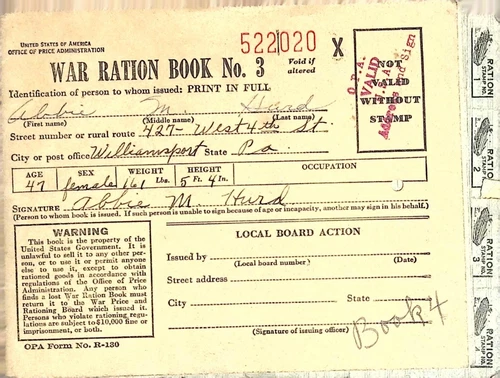 UNITED STATES OF AMERICA
OFFICE OF PRICE ADMINISTRATION
522020 X
WAR RATION BOOK No. 3
Void if altered
Identification of person to whom issued: PRINT IN FULL
Abbie M. Hurd
(First name) (Middle name) (Last name)
Street number or rural route 427- West 4th St
City or post office Williamsport State Pa.
AGE SEX WEIGHT HEIGHT OCCUPATION
47 female 161 Lbs. 5 Ft. 4 In.
SIGNATURE Abbie M. Hurd
(Person to whom book is issued. If such person is unable to sign because of age or incapacity, another may sign in his behalf.)
O.P.A.
VALID
NOT VALID WITHOUT STAMP
WARNING
This book is the property of the
United States Government. It is
unlawful to sell it to any other per-
son, or to use it or permit anyone
else to use it, except to obtain
rationed goods in accordance with
regulations of the Office of Price
Administration. Any person who
finds a lost War Ration Book must
return it to the War Price and
Rationing Board which issued it.
Persons who violate rationing regu-
lations are subject to $10,000 fine or
imprisonment, or both.
OPA Form No. R-130
LOCAL BOARD ACTION
Issued by
(Local board number) (Date)
Street address
City State
(Signature of issuing officer)
Book 4
RATION STAMP NO. 1
RATION STAMP NO. 2
RATION STAMP NO. 3
RATION STAMP NO. 4